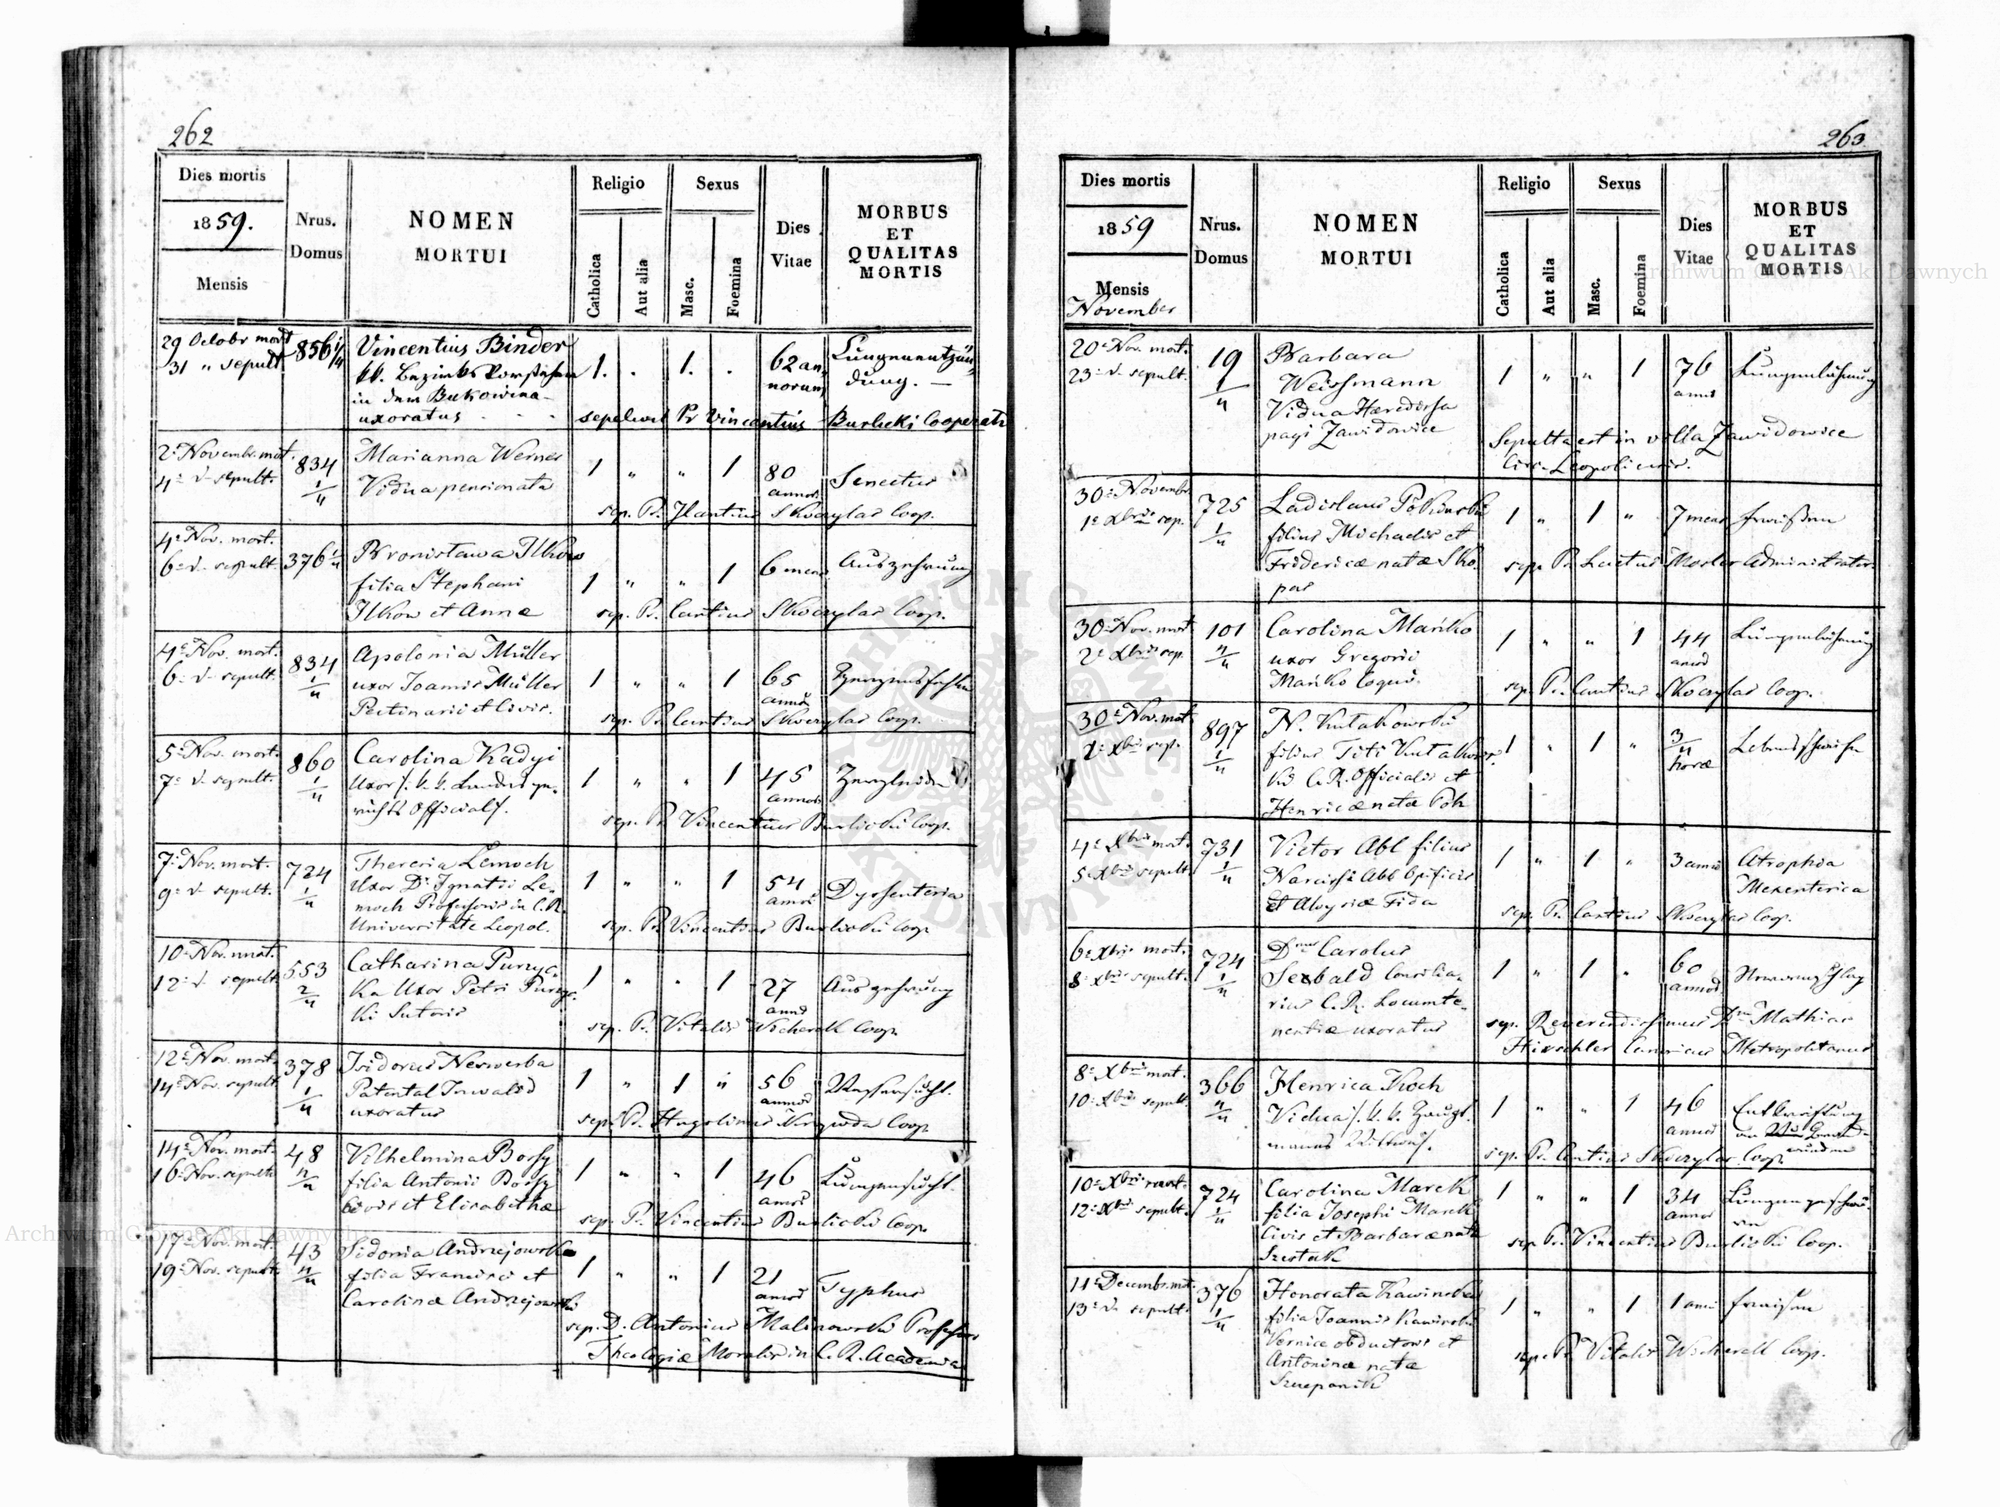 262
Dies mortis
1859.
Mensis
Nrus.
Domus
NOMEN
MORTUI
Religio
Catholica
Aut alia
Sexus
Masc.
Foemina
Dies
Vitae
MORBUS
ET
QUALITAS
MORTIS
29 Octobr mort
31 " sepult
856 1/4
Vincentius Binder
kk. Bezirks
in dem Bukowina
uxoratus
1. . 1. .
62 an
norum
Lungenentzün
dung. —
sepelivit Pr Vincentius Burlicki Cooperat
2a Novembr. mort.
4a d sepult.
834
1/4
Marianna Werner
Vidua pensionata
1 " " 1
80
annor.
Senectus
sep. Pr. Cantius Skoczylas Coop.
4a Nov. mort.
6a d sepult.
376 1/4
Bronisława Ilkow
filia Stephani
Ilkow et Annæ
1 " " 1
6 mens
Auszehrung
sep. Pr. Cantius Skoczylas Coop.
4a Nov. mort.
6a d sepult.
834
1/4
Apolonia Müller
uxor Joannis Müller
Pectinarii et Civis.
1 " " 1
65
annor
sep. Pr. Cantius Skoczylas Coop.
5a Nov. mort.
7a d sepult.
860
1/4
Carolina Kadyi
Uxor k. k. Landesge-
richts Officials.
1 " " 1
45
annor
sep. Pr. Vincentius Burlicki Coop.
7a Nov. mort.
9a d sepult.
724
1/4
Theresia Lemoch
Uxor Di Ignatii Le-
moch Professoris in C. R.
Universitate Leopol.
1 " " 1
54
annor
Dyssenteria
sep. Pr. Vincentius Burlicki Coop
10a Nov. mort.
12a d sepult.
553
2/4
Catharina Purzyc-
ka Uxor Petri Purzyc-
ki Sutoris
1 " " 1
27
annor
Auszehrung
sep. Pr. Vitalis Wicherek Coop.
12a Nov. mort.
14a Nov. sepult.
378
1/4
Isidorus Neswerba
Patental Invalid
uxoratus
1 " 1 "
56
annor
Wassersucht.
sep. Pr. Hugolinus Coop.
14a Nov. mort.
16a Nov. sepult.
48
4/4
Vilhelmina Bossy
filia Antonii Bossy
Civis et Elisabethæ
1 " " 1
46
annor
Lungensucht.
sep. Pr. Vincentius Burlicki Coop.
17a Nov. mort.
19a Nov. sepult.
43
4/4
Sidonia Andrzejowska
filia Francisci et
Carolinæ Andrzejowski
1 " " 1
21
annor
Typhus
sep. D. Antonius Malinowski Professor
Theologiæ Moralis in C. R. Academia
263
Dies mortis
1859
Mensis
November
Nrus.
Domus
NOMEN
MORTUI
Religio
Catholica
Aut alia
Sexus
Masc.
Foemina
Dies
Vitae
MORBUS
ET
QUALITAS
MORTIS
20a Nov. mort.
23a d sepult.
19
1/4
Barbara
Weissmann
Vidua Hæredissa
pagi Zawidowice
1 " " 1
76
annor
Lungenlähmung
Sepulta est in villa Zawidowice
Circ. Leopoliensis.
30a Novembr.
1a Xbris sep.
725
1/4
filius Michaelis et
Fridericæ natæ Sko-
par
1 " 1 "
7 mens
Fraisen
sep. Pr. Lactus Mosler Administrator.
30a Nov. mort
2a Xbris sep.
101
4/4
Carolina Mańko
uxor Gregorii
Mańko Coqui.
1 " " 1
44
annor
Lungenlähmung
sep. Pr. Cantius Skoczylas Coop.
30a Nov. mort
2a Xbris sep.
897
1/4
N. Kutakowski
filius Titi Kutakows-
ki C. R. Officialis et
Henricæ natæ Poh
1 " 1 "
3/4
horæ
Lebensschwäche
4a Xbris mort.
5a Xbris sepult.
731
1/4
Victor Abl filius
Narcissi Abl Opificis
et Aloysiæ Fida
1 " 1 "
3 annor
Atrophia
Mexenterica
sep. Pr. Cantius Skoczylas Coop.
6a Xbris mort.
8a Xbris sepult.
724
1/4
Dnus Carolus
Seebald Consilia-
rius C. R. Locumte-
nentiæ uxoratus
1 " 1 "
60
annor
sep. Reverendissimus Dnus Mathias
Hirschler Canonicus Metropolitanus
8a Xbris mort.
10a Xbris sepult.
366
4/4
Henrica Koch
Vidua k. k.
1 " " 1
46
annor
Entkräftung
sep. Pr. Cantius Skoczylas Coop.
10a Xbris mort.
12a Xbris sepult.
724
1/4
Carolina Marek
filia Josephi Marek
Civis et Barbaræ natæ
Szostak
1 " " 1
34
annor
sep. Pr. Vincentius Burlicki Coop.
11a Decembr. mort.
13a d sepult.
376
1/4
Honorata Kawinska
filia Joannis Kawinski
Vernice obductoris et
Antoninæ natæ
Szczepanik
1 " " 1
1 anni
Fraisen
sep. Pr. Vitalis Wicherek Coop.
Archiwum Główne Akt Dawnych
Archiwum Główne Akt Dawnych
ARCHIWUM GŁÓWNE AKT DAWNYCH